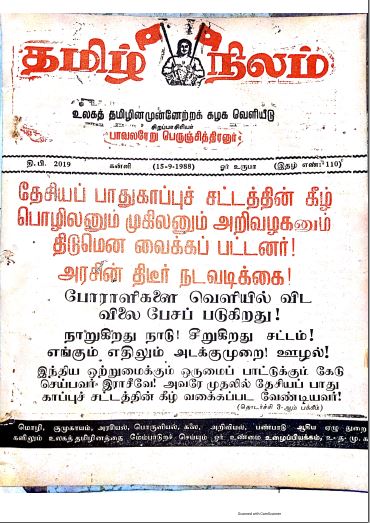 தமிழ் நிலம்
உலகத் தமிழினமுன்னேற்றக் கழக வெளியீடு
சிறப்பாசிரியர்
பாவலரேறு பெருஞ்சித்திரனார்
தி.பி. 2019 கன்னி (15-9-1988) ஓர் உருபா (இதழ் எண்: 110)
தேசியப் பாதுகாப்புச் சட்டத்தின் கீழ்
பொழிலனும் முகிலனும் அறிவழகனும்
திடுமென வைக்கப் பட்டனர்!
அரசின் திடீர் நடவடிக்கை!
போராளிகளை வெளியில் விட
விலை பேசப் படுகிறது!
நாறுகிறது நாடு! சீறுகிறது சட்டம்!
எங்கும் எதிலும் அடக்குமுறை! ஊழல்!
இந்திய ஒற்றுமைக்கும் ஒருமைப் பாட்டுக்கும் கேடு
செய்பவர் இராசீவே! அவரே முதலில் தேசியப் பாது
காப்புச் சட்டத்தின் கீழ் வகைக்கப்பட வேண்டியவர்!
(தொடர்ச்சி 3-ஆம் பக்கம்)
மொழி, குமுகாயம், அரசியல், பொருளியல், கலை, அறிவியல், பண்பாடு ஆகிய ஏழு துறை
களிலும் உலகத் தமிழினத்தை மேம்பாடுறச் செய்யும் ஓர் உண்மை உழைப்பியக்கம், உ-த-மு.க
Scanned with CamScanner